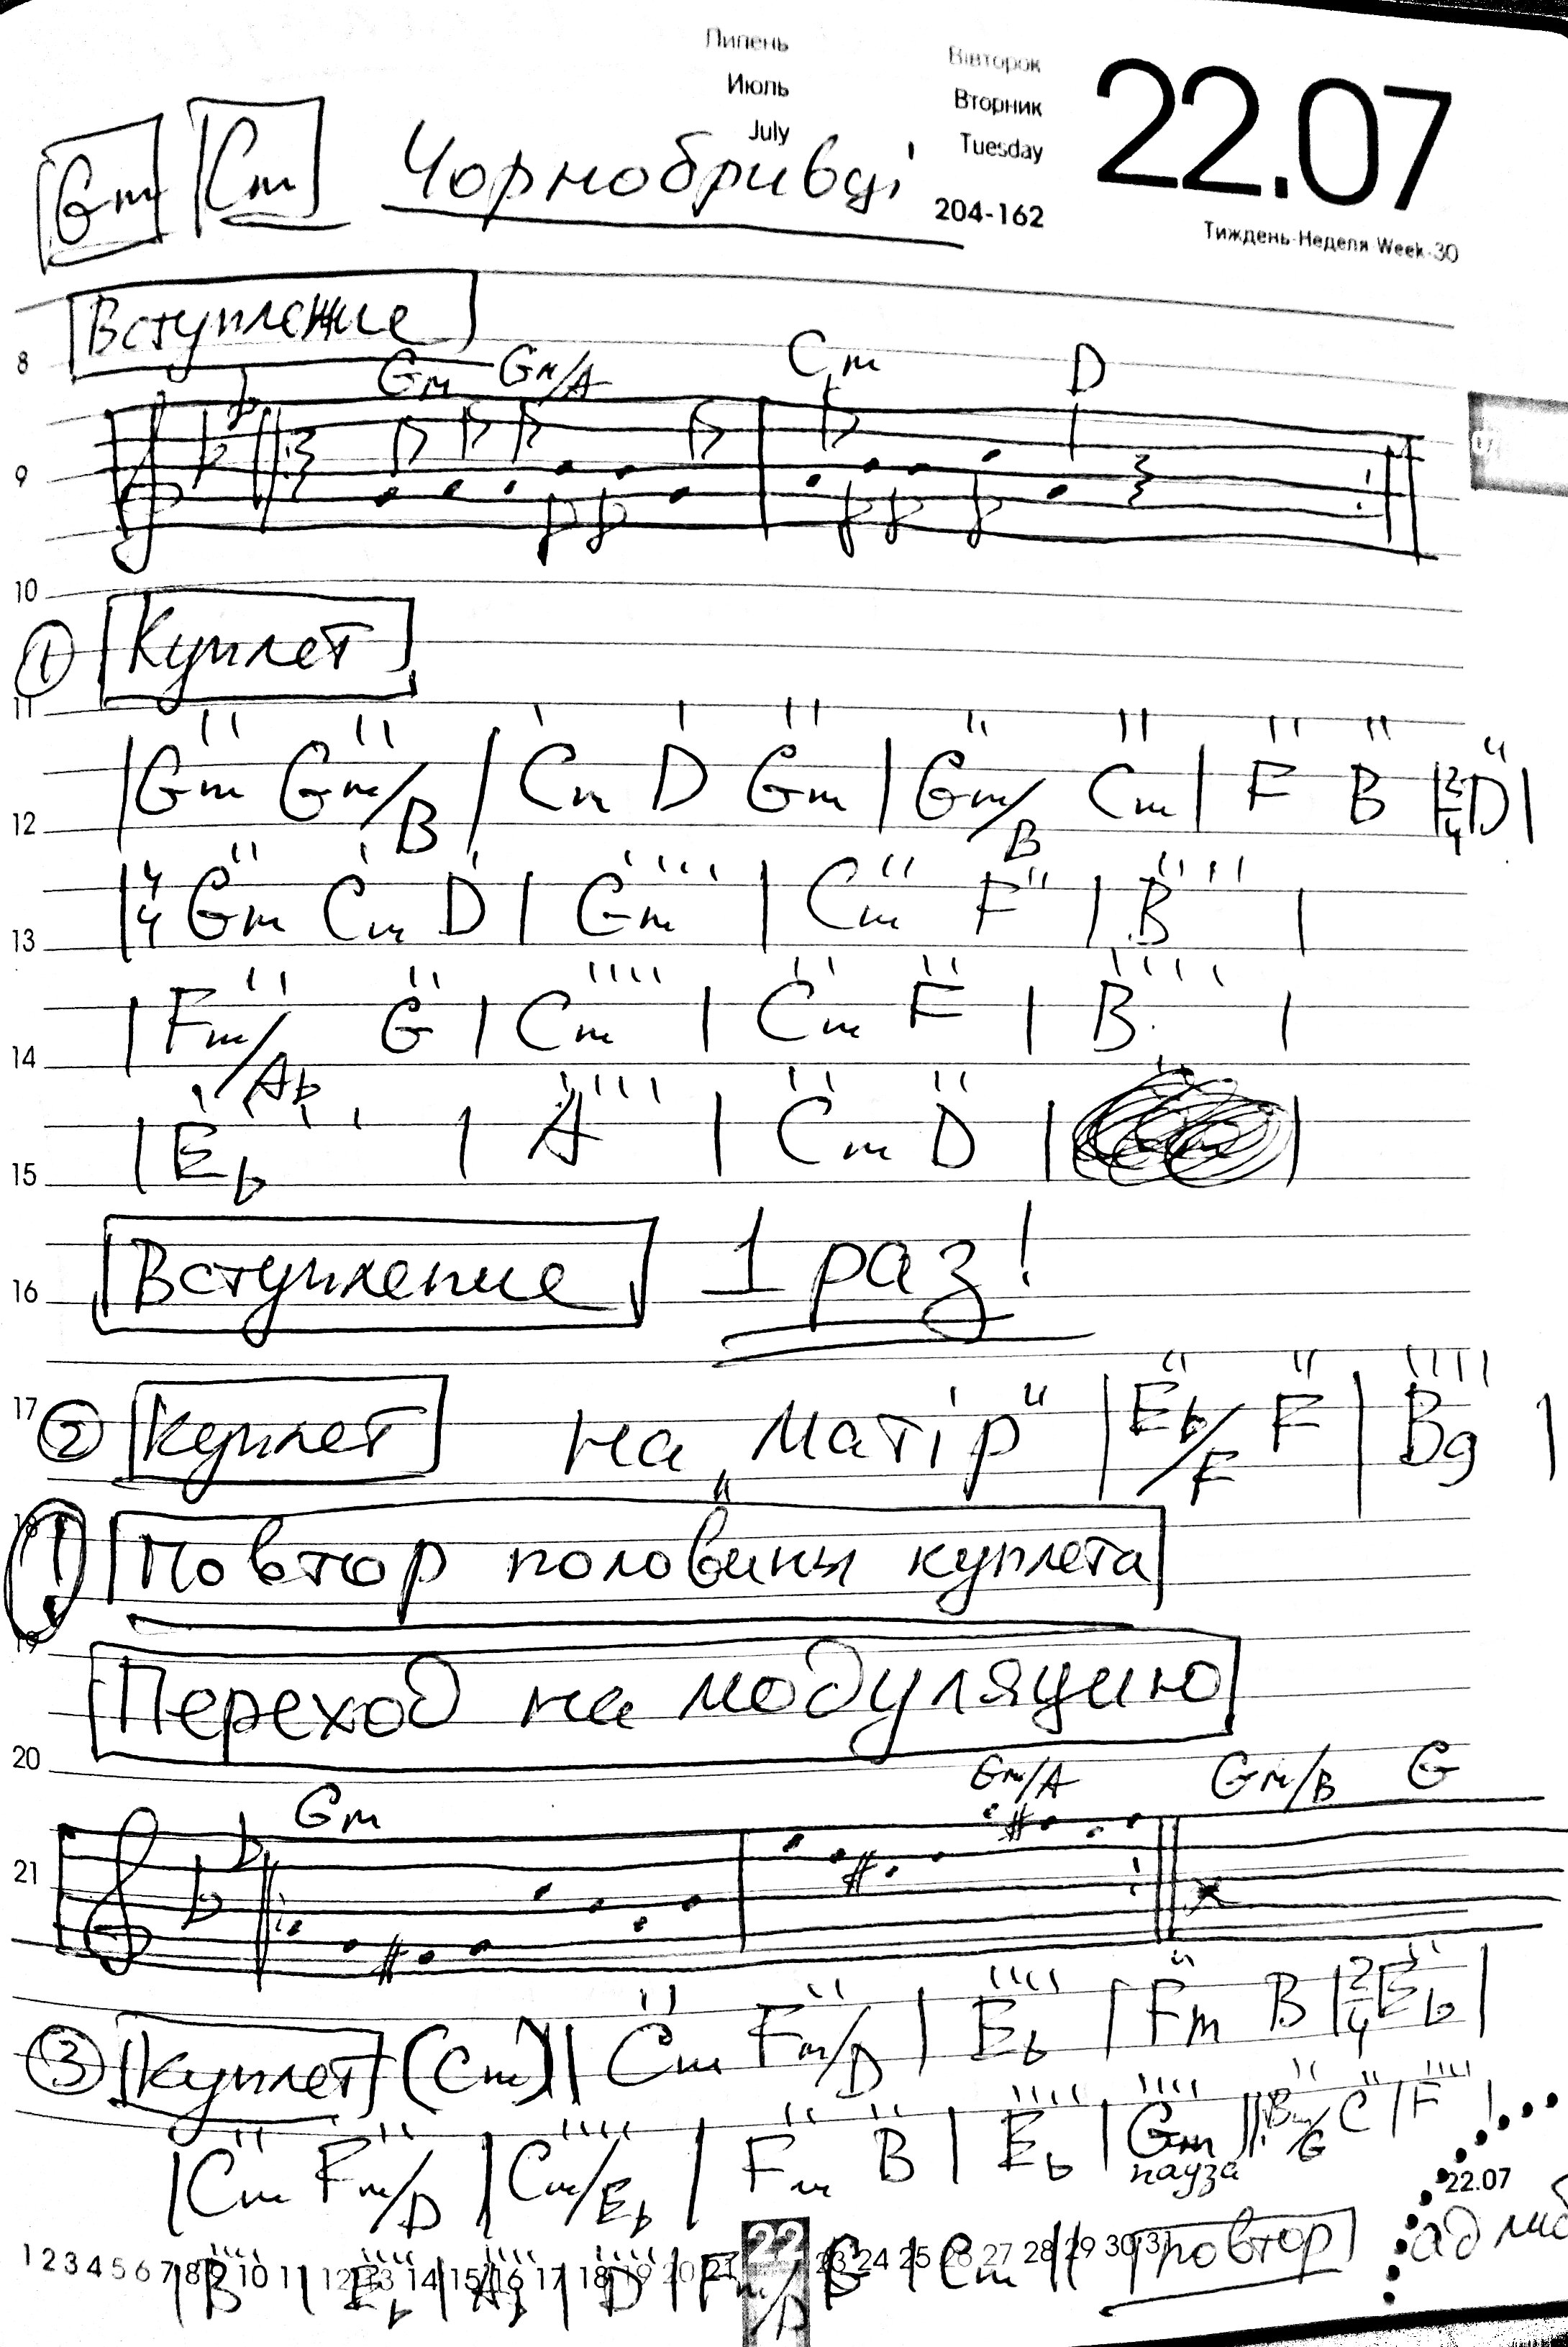 Липень
Июль
July
Вівторок
Вторник
Tuesday
204-162
22.07
Тиждень-Неделя-Week-30
Gm Cm Чорнобривці
Вступление
8
Gm Gm/A Cm D
9
10
① Куплет
11
| Gm Gm/B | Cm D Gm | Gm/B Cm | F B | 2/4 D |
12
| 4/4 Gm Cm D | Gm | Cm F | B |
13
| Fm/Ab G | Cm | Cm F | B |
14
| Eb | A | Cm D |
15
Вступление 1 раз!
16
17 ② Куплет на „Матір" | Eb/F F | B9 |
! Повтор половины куплета
19
Переход на модуляцию
20
Gm Gm/A Gm/B G
21
③ Куплет (Cm) | Cm Fm/D | Eb | Fm B | 2/4 Eb |
| Cm Fm/D | Cm/Eb | Fm B | Eb | Gm || Bm/G C | F |
пауза
22.07
| B | Eb | Ab | D | Fm/D G | Cm || повтор ад либ
1 2 3 4 5 6 7 8 9 10 11 12 13 14 15 16 17 18 19 20 21 22 23 24 25 26 27 28 29 30 31